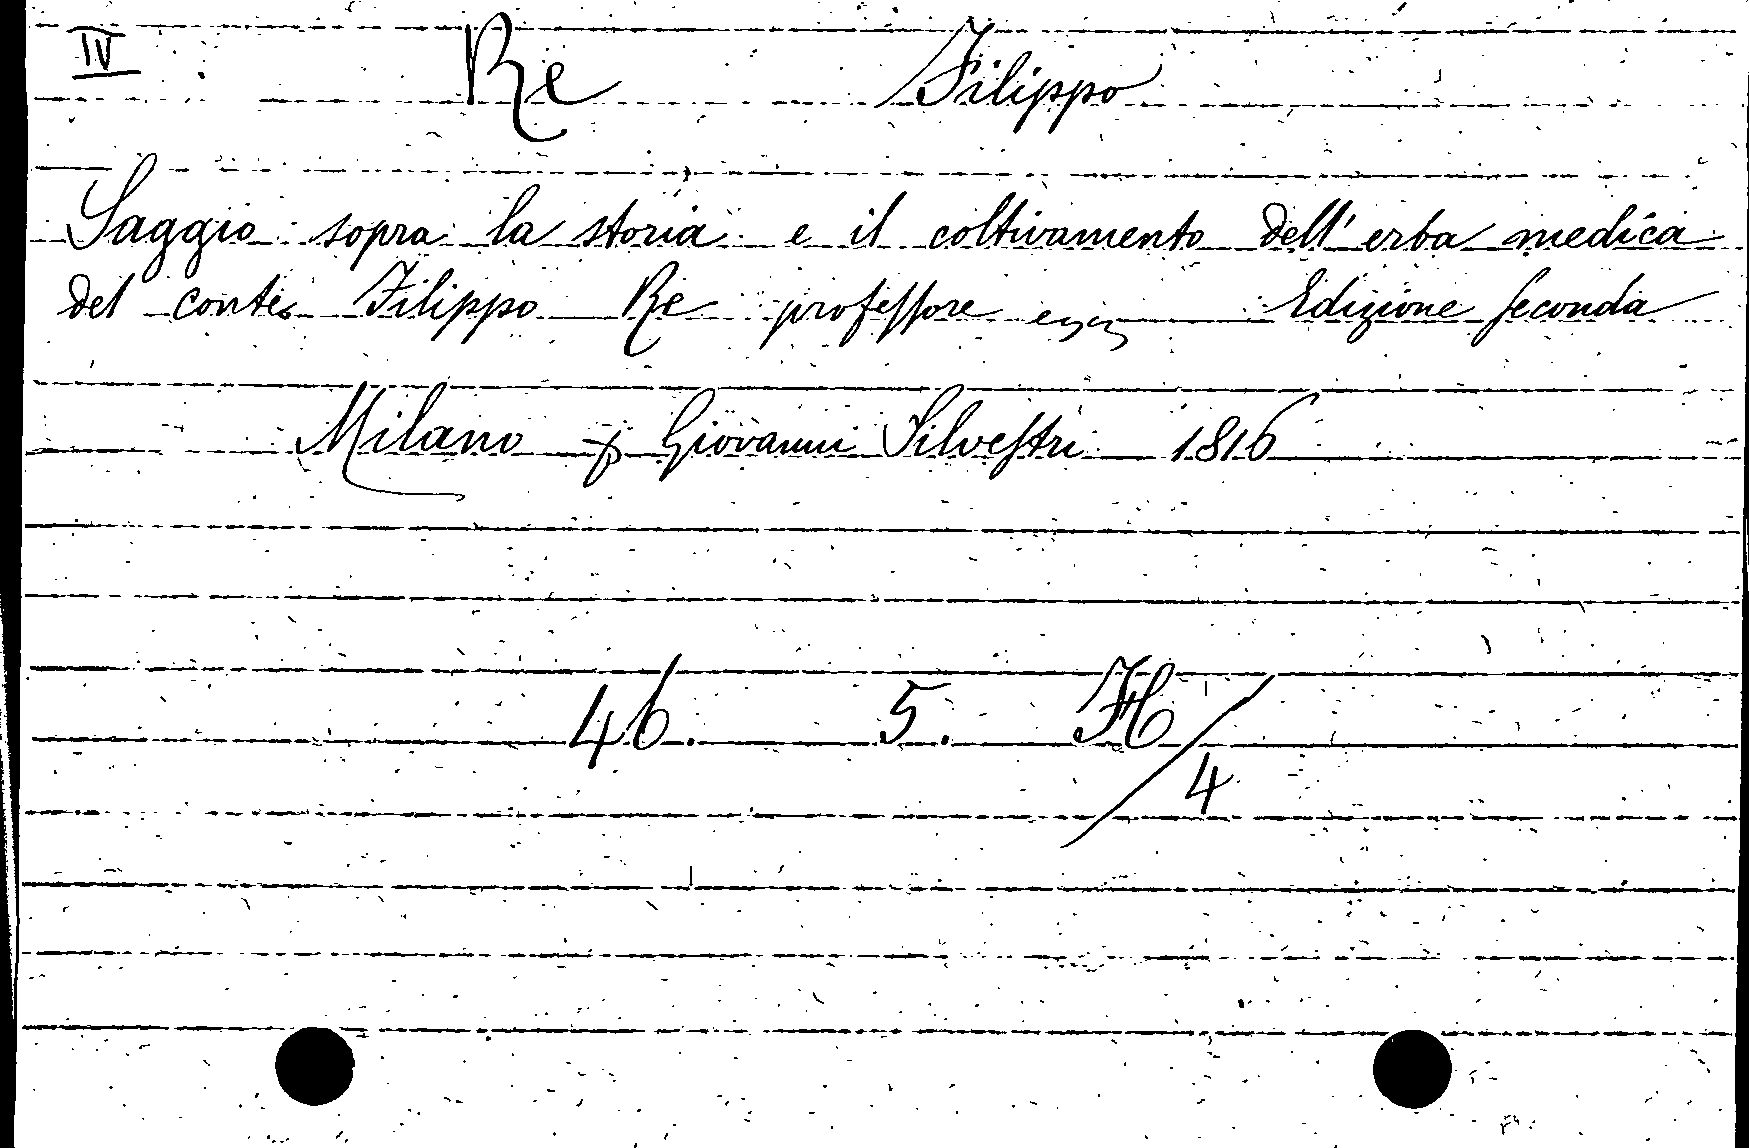 IV Re Filippo
Saggio sopra la storia e il coltivamento dell'erba medica
del conte Filippo Re professore ezz Edizione seconda
Milano Giovanni Silvestri 1816
46. 5. H/4